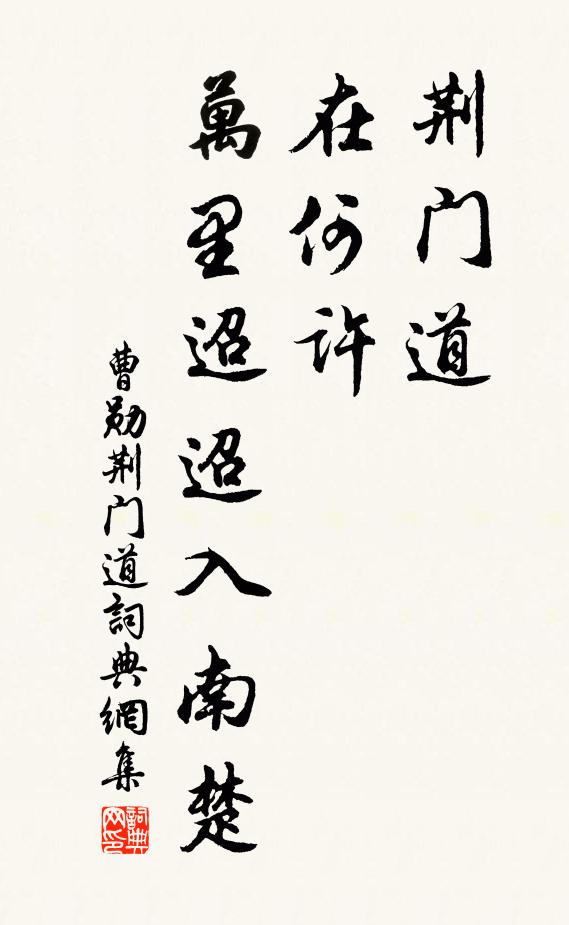 荆门道
在何许
萬里迢迢入南楚
曹勛荆门道詞典網集
詞典网印